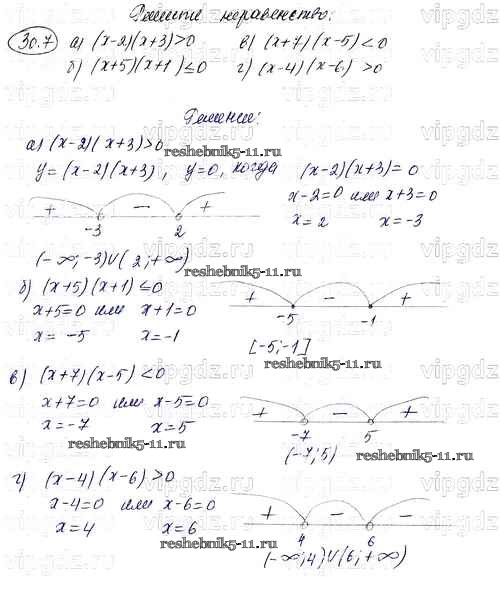 Решите неравенство:
30.7 а) (x-2)(x+3)>0 в) (x+7)(x-5)<0
б) (x+5)(x+1)≤0 г) (x-4)(x-6)>0
Решение:
а) (x-2)(x+3)>0
reshebnik5-11.ru
y=(x-2)(x+3), y=0, когда (x-2)(x+3)=0
x-2=0 или x+3=0
x=2 x=-3
+ - +
-3 2
(-∞;-3)∪(2;+∞)
reshebnik5-11.ru
б) (x+5)(x+1)≤0
x+5=0 или x+1=0
x=-5 x=-1
+ - +
-5 -1
[-5;-1]
reshebnik5-11.ru
в) (x+7)(x-5)<0
x+7=0 или x-5=0
x=-7 x=5
+ - +
-7 5
(-7;5)
reshebnik5-11.ru
reshebnik5-11.ru
г) (x-4)(x-6)>0
x-4=0 или x-6=0
x=4 x=6
+ - +
4 6
(-∞;4)∪(6;+∞)
reshebnik5-11.ru
vipgdz.ru